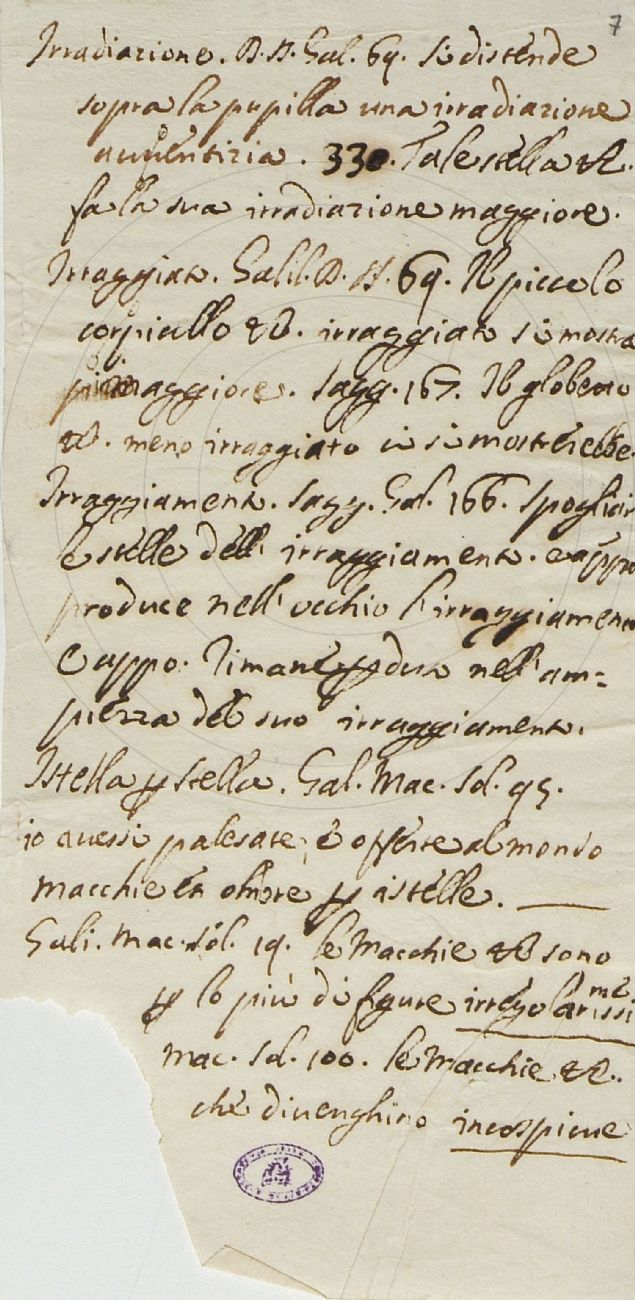 7
Irradiazione. D.S. Gal. 69. Si distende
sopra la pupilla una irradiazione
auuentizia. 330. Tale stella &c.
fa la sua irradiazione maggiore.
Irraggiato. Galil. D. S. 69. Il piccolo
corpicello &c. irraggiato si mostra
maggiore. Sagg. 167. Il globetto
&c. meno irraggiato ci si mostrerebbe.
Irraggiamento. Sagg. Gal. 166. Spogliar
le stelle dell' irraggiamento. e appo
produce nell' occhio l' irraggiamento
e appo. Rimane nell' am=
piezza del suo irraggiamento.
Istella p stella. Gal. Mac. Sol. 95.
io auessi palesate, e offerte al mondo
macchie et ombre p istelle. —
Gali. Mac. Sol. 19. le Macchie &c sono
p lo più di figure irregolarissime
Mac. Sol. 100. le Macchie &c.
che diuenghino incospicue